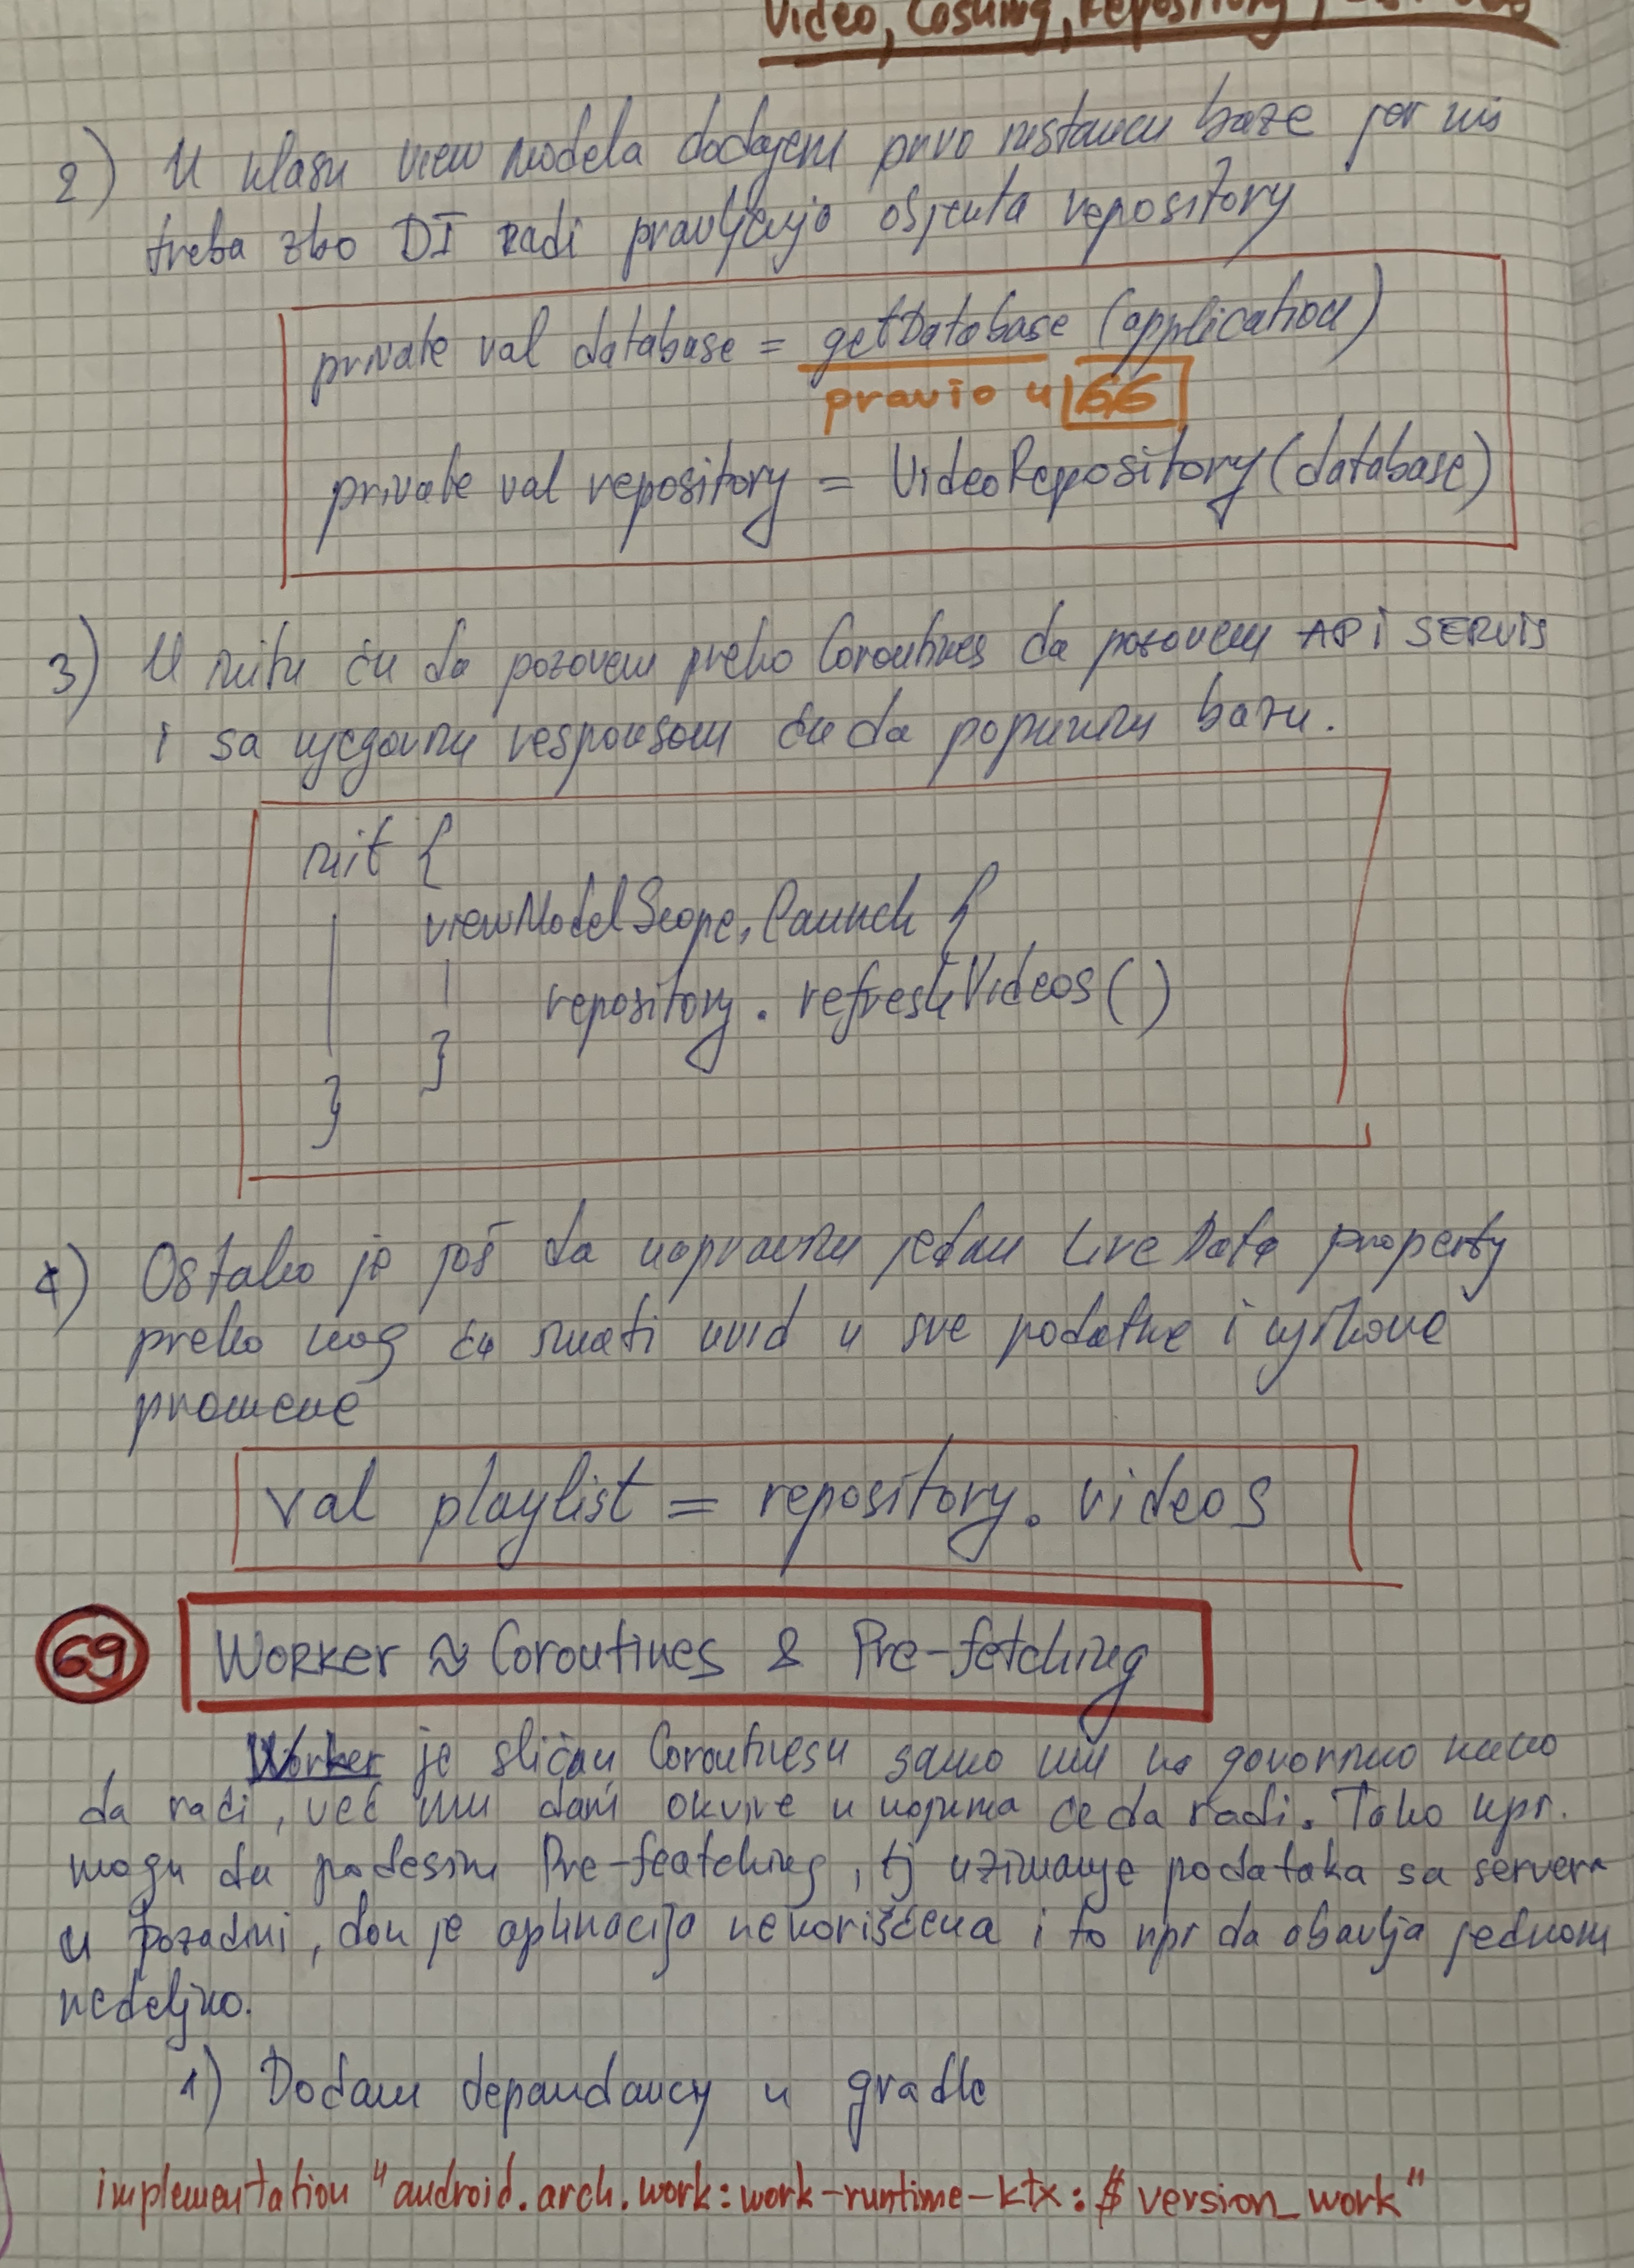 Video, Cashing, Repository,
2) U klasu view modela dodajem prvo instancu baze jer mi
treba zbo DI radi pravljenja objekta repository
private val database = getDatabase (application)
pravio u 66
private val repository = VideoRepository(database)
3) U initu ću da pozovem preko Coroutines da pozovem API SERVIS
i sa njegovim responsom ću da popunim bazu.
init {
viewModelScope.launch {
repository.refreshVideos()
}
}
4) Ostalo je još da napravim jedan LiveData property
preko kog ću imati uvid u sve podatke i njihove
promene
val playlist = repository.videos
69 Worker ≈ Coroutines & Pre-fetching
Worker je sličan Coroutinesu samo mu ne govorimo kako
da radi, već mu dam okvire u kojima će da radi. Tako npr.
mogu da podesim Pre-featching, tj uzimanje podataka sa servera
u pozadini, dok je aplikacija nekorišćena i to npr da obavlja jednom
nedeljno.
1) Dodam dependancy u gradle
implementation "android.arch.work:work-runtime-ktx:$version_work"